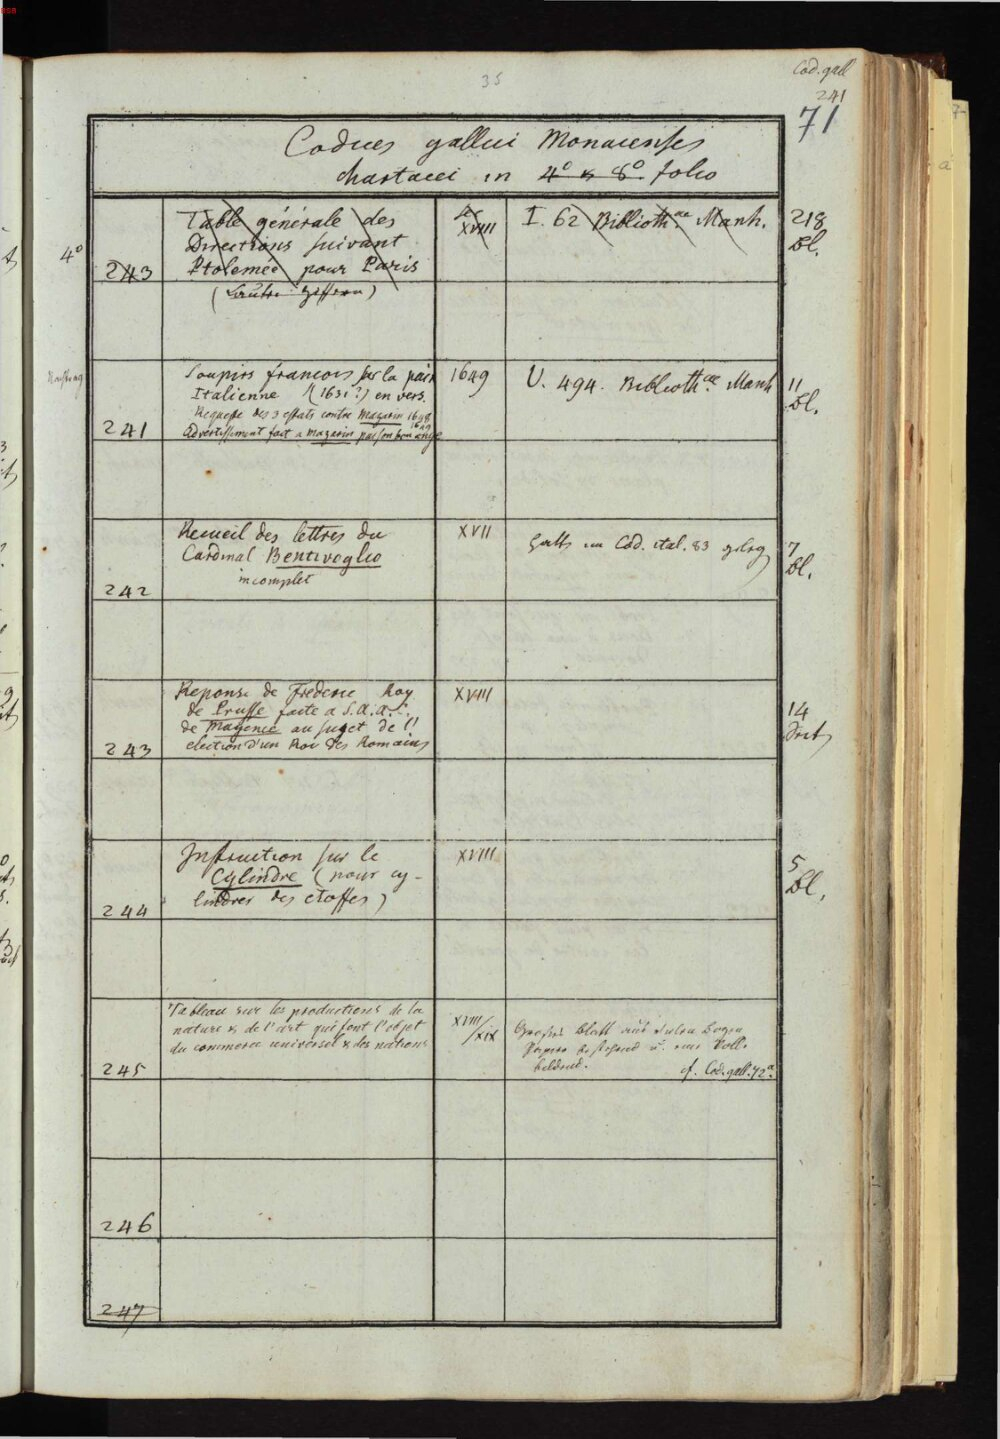 35
Cod. gall
241
71
Codices gallici Monacenses
chartacei in 4º & 8º. folio
4º
243
Table générale des
Directions suivant
Ptolemée pour Paris
XVIII
I. 62 Biblioth.ae Manh.
218
Bl.
241
Soupirs francois sur la paix
Italienne (1631?) en vers.
Requeste des 3 estats contre Mazarin 1648
Advertissement fait a Mazarin par son bon ange
1649
1649
U. 494. Biblioth.ae Manh
11
Bl.
242
Recueil des lettres du
Cardinal Bentivoglio
incomplet
XVII
Cod. ital. 83
7
Bl.
243
Reponse de Frederic Roy
de Prusse faite a S.A.
de Mayence au sujet de l'
election d'un Roi des Romains
XVIII
14
244
Instruction sur le
Cylindre (pour cy-
lindrer des etoffes)
XVIII
5
Bl.
245
Tableau sur les productions de la
nature & de l'art qui font l'objet
du commerce universel & des nations
XVIII/XIX
Grosses Blatt aus Bogen
Papier bestehend u. eine Rolle
bildend.
cf. Cod. gall. 72a.
246
247